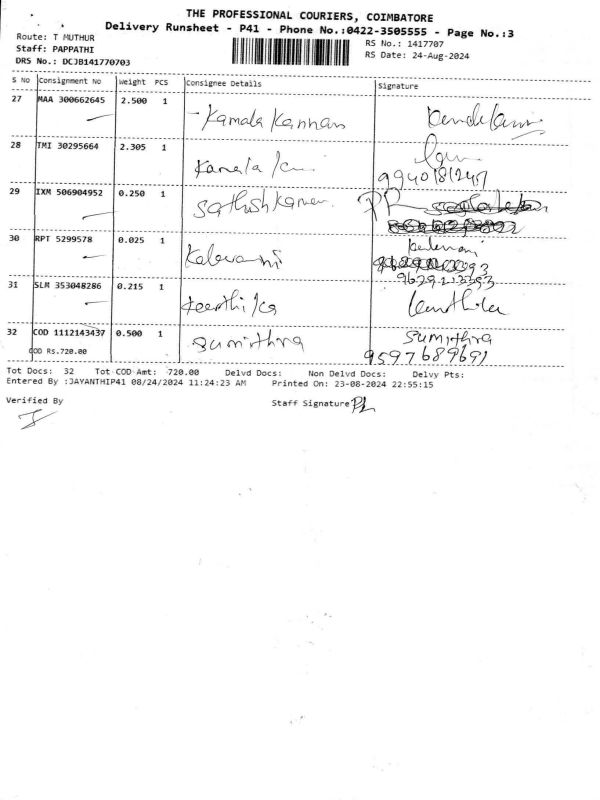 THE PROFESSIONAL COURIERS, COIMBATORE
Delivery Runsheet - P41 - Phone No.:0422-3505555 - Page No.:3
Route: T MUTHUR
RS No.: 1417707
Staff: PAPPATHI
RS Date: 24-Aug-2024
DRS No.: DCJB141770703
S No Consignment No Weight PCS Consignee Details Signature
27 MAA 300662645 2.500 1 Kamala Kannan
28 TMI 30295664 2.305 1 Kamala
29 IXM 506904952 0.250 1 Sathish Kumar
30 RPT 5299578 0.025 1 Kalavani
9629213393
31 SLM 353048286 0.215 1 Keerthika Keerthika
32 COD 1112143437 0.500 1 Sumithra Sumithra
COD Rs.720.00 9597689691
Tot Docs: 32 Tot COD Amt: 720.00 Delvd Docs: Non Delvd Docs: Delvy Pts:
Entered By :JAYANTHIP41 08/24/2024 11:24:23 AM Printed On: 23-08-2024 22:55:15
Verified By Staff Signature